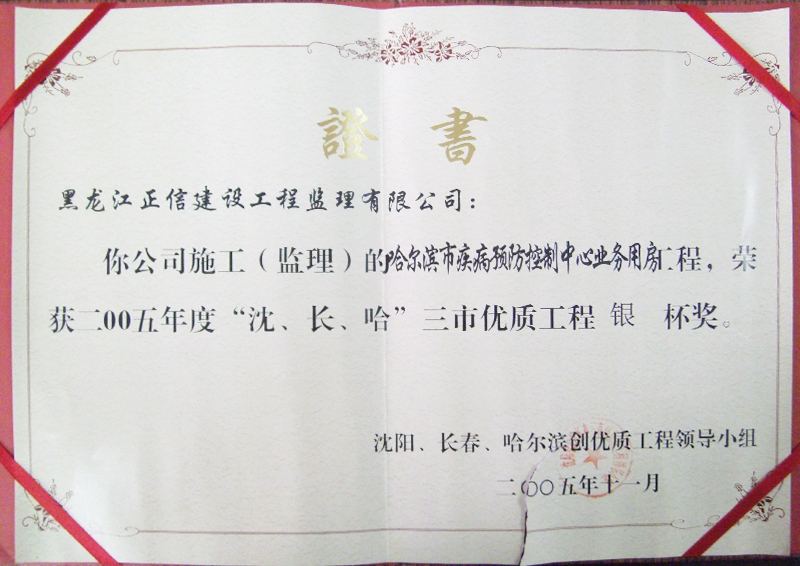 證書
黑龙江正信建设工程监理有限公司：
你公司施工（监理）的哈尔滨市疾病预防控制中心业务用房工程，荣
获二00五年度“沈、长、哈”三市优质工程 银 杯奖。
沈阳、长春、哈尔滨创优质工程领导小组
二〇〇五年十一月